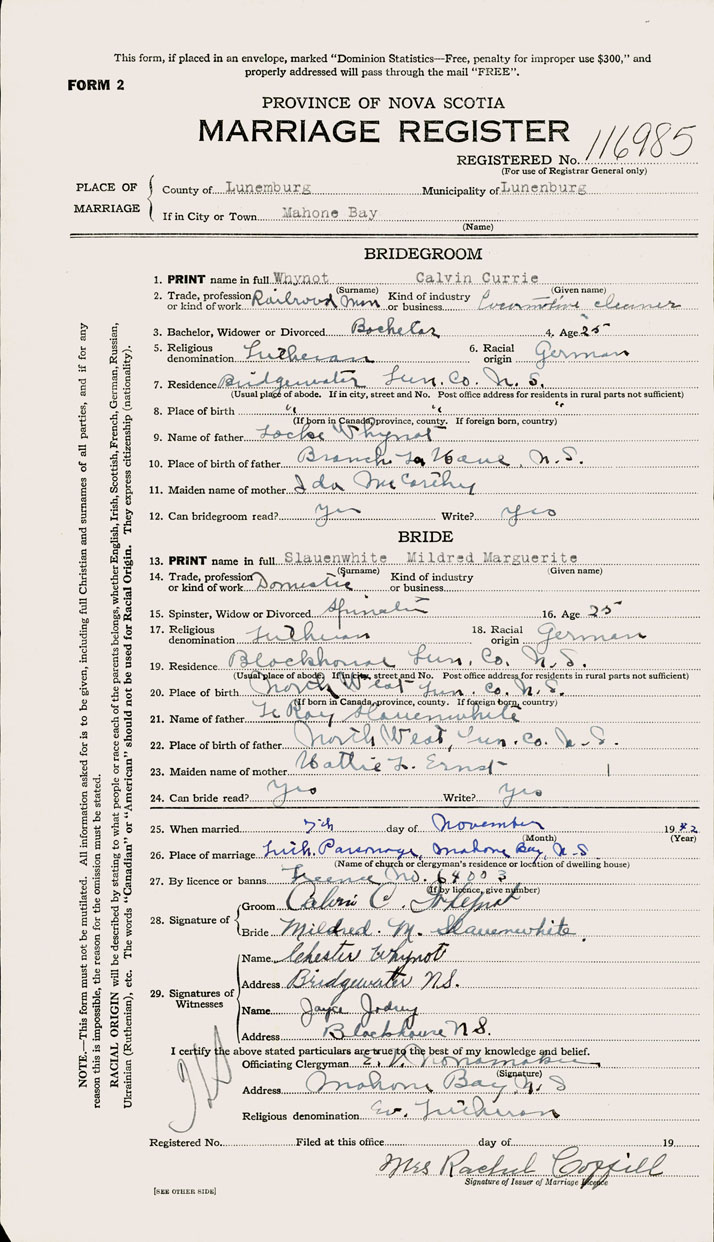 This form, if placed in an envelope, marked "Dominion Statistics—Free, penalty for improper use $300," and
properly addressed will pass through the mail "FREE".
FORM 2
PROVINCE OF NOVA SCOTIA
MARRIAGE REGISTER
116985
REGISTERED No.
(For use of Registrar General only)
PLACE OF MARRIAGE
County of Lunemburg Municipality of Lunenburg
If in City or Town Mahone Bay
(Name)
BRIDEGROOM
1. PRINT name in full Whynot Calvin Currie
(Surname) (Given name)
2. Trade, profession or kind of work Railroad Man Kind of industry or business Locomotive cleaner
3. Bachelor, Widower or Divorced Bachelor 4. Age 25
5. Religious denomination Lutheran 6. Racial origin German
7. Residence Bridgewater Lun. Co. N. S.
(Usual place of abode. If in city, street and No. Post office address for residents in rural parts not sufficient)
8. Place of birth " " "
(If born in Canada, province, county. If foreign born, country)
9. Name of father Locke Whynot
10. Place of birth of father Branch La Have, N.S.
11. Maiden name of mother Ida McCarthy
12. Can bridegroom read? Yes Write? Yes
BRIDE
13. PRINT name in full Slauenwhite Mildred Marguerite
(Surname) (Given name)
14. Trade, profession or kind of work Domestic Kind of industry or business
15. Spinster, Widow or Divorced Spinster 16. Age 25
17. Religious denomination Lutheran 18. Racial origin German
19. Residence Blockhouse Lun. Co. N. S.
(Usual place of abode. If in city, street and No. Post office address for residents in rural parts not sufficient)
20. Place of birth North West Lun. Co. N. S.
(If born in Canada, province, county. If foreign born, country)
21. Name of father Le Roy Slauenwhite
22. Place of birth of father North West, Lun. Co. N. S.
23. Maiden name of mother Hattie L. Ernst
24. Can bride read? Yes Write? Yes
25. When married 7th day of November 1942
(Month) (Year)
26. Place of marriage Luth. Parsonage, Mahone Bay, N.S
(Name of church or clergyman's residence or location of dwelling house)
27. By licence or banns Licence No. 64003
(If by licence, give number)
28. Signature of
Groom Calvin C. Whynot
Bride Mildred. M. Slauenwhite.
29. Signatures of Witnesses
Name Chester Whynot
Address Bridgewater N.S.
Name Joyce Jodrey
Address Blockhouse N S.
I certify the above stated particulars are true to the best of my knowledge and belief.
Officiating Clergyman E. V. Nonamaker
(Signature)
Address Mahone Bay, N. S
Religious denomination Ev. Lutheran
Registered No. Filed at this office day of 19
Mrs Rachel Coffill
Signature of Issuer of Marriage Licence
[SEE OTHER SIDE]
NOTE.—This form must not be mutilated. All information asked for is to be given, including full Christian and surnames of all parties, and if for any
reason this is impossible, the reason for the omission must be stated.
RACIAL ORIGIN will be described by stating to what people or race each of the parents belongs, whether English, Irish, Scottish, French, German, Russian,
Ukrainian (Ruthenian), etc. The words "Canadian" or "American" should not be used for Racial Origin. They express citizenship (nationality).